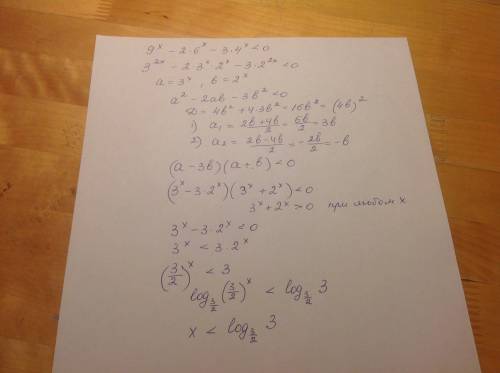 9^x − 2·6^x − 3·4^x < 0
3^{2x} − 2·3^x·2^x − 3·2^{2x} < 0
a = 3^x, b = 2^x
a² − 2ab − 3b² < 0
D = 4b² + 4·3b² = 16b² = (4b)²
1) a₁ = (2b+4b)/2 = 6b/2 = 3b
2) a₂ = (2b−4b)/2 = −2b/2 = −b
(a − 3b)(a + b) < 0
(3^x − 3·2^x)(3^x + 2^x) < 0
3^x + 2^x > 0 при любом x
3^x − 3·2^x < 0
3^x < 3·2^x
(3/2)^x < 3
log_{3/2} (3/2)^x < log_{3/2} 3
x < log_{3/2} 3